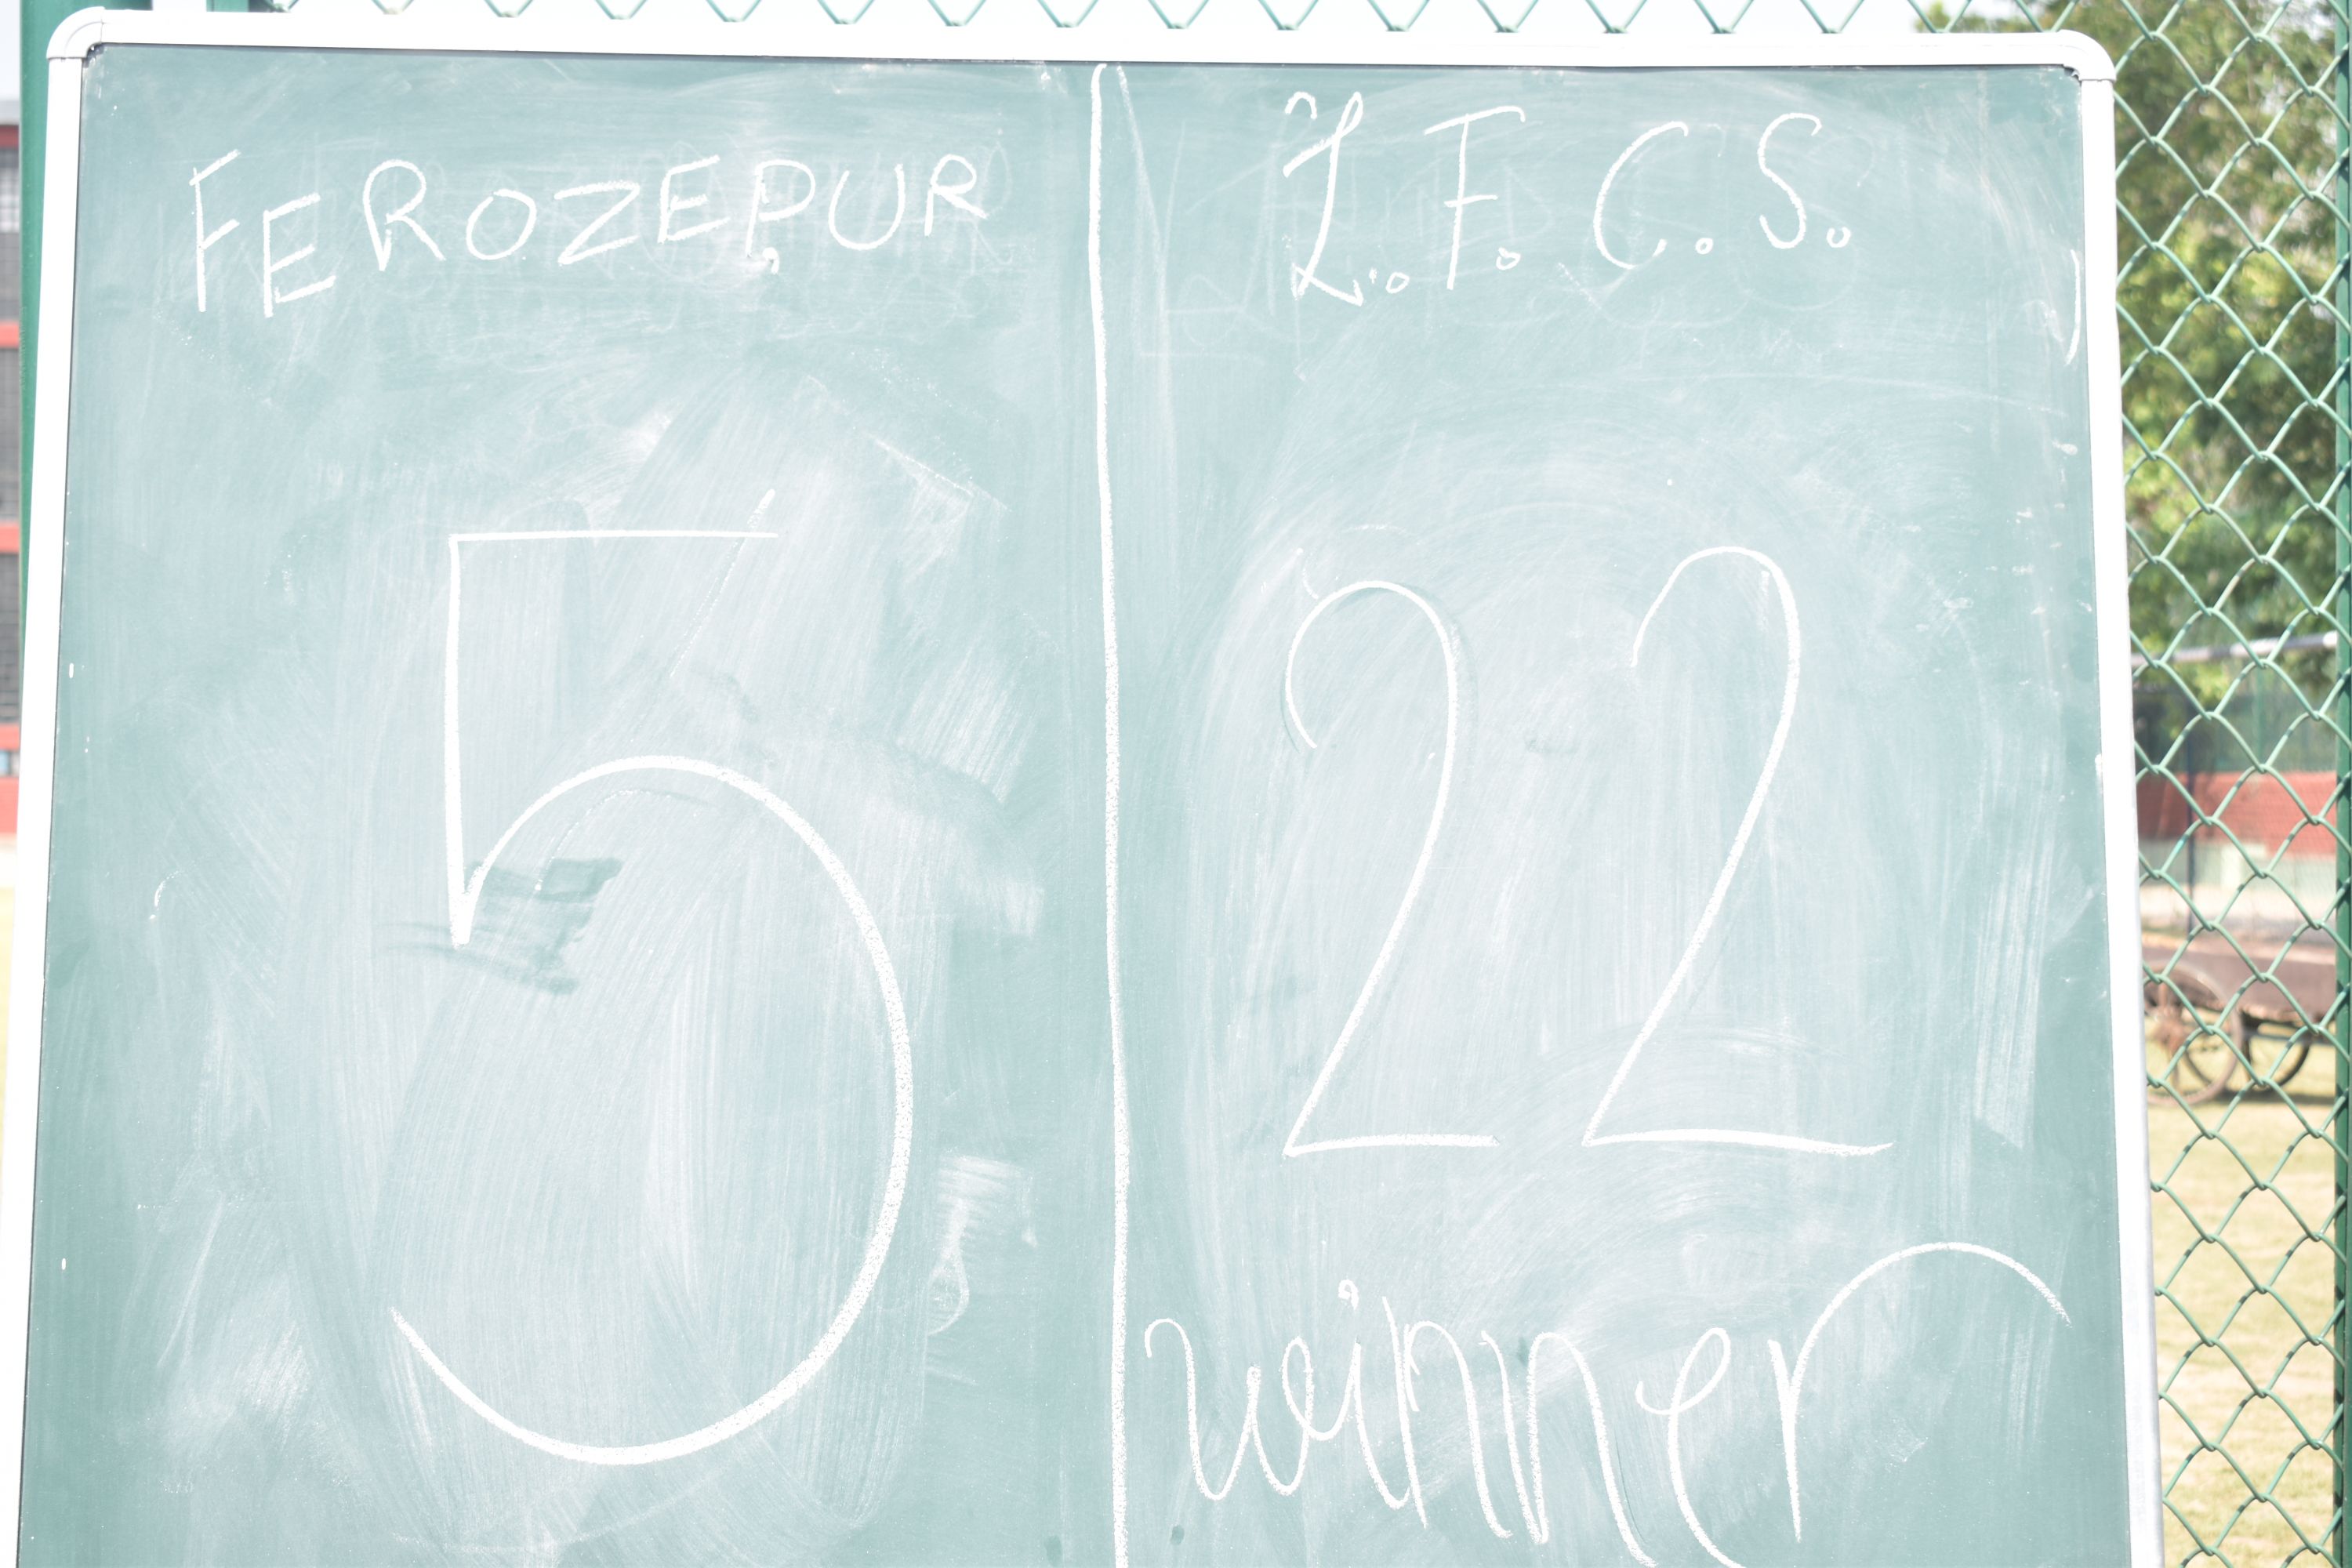 FEROZEPUR
L.F.C.S.
5
22
winner